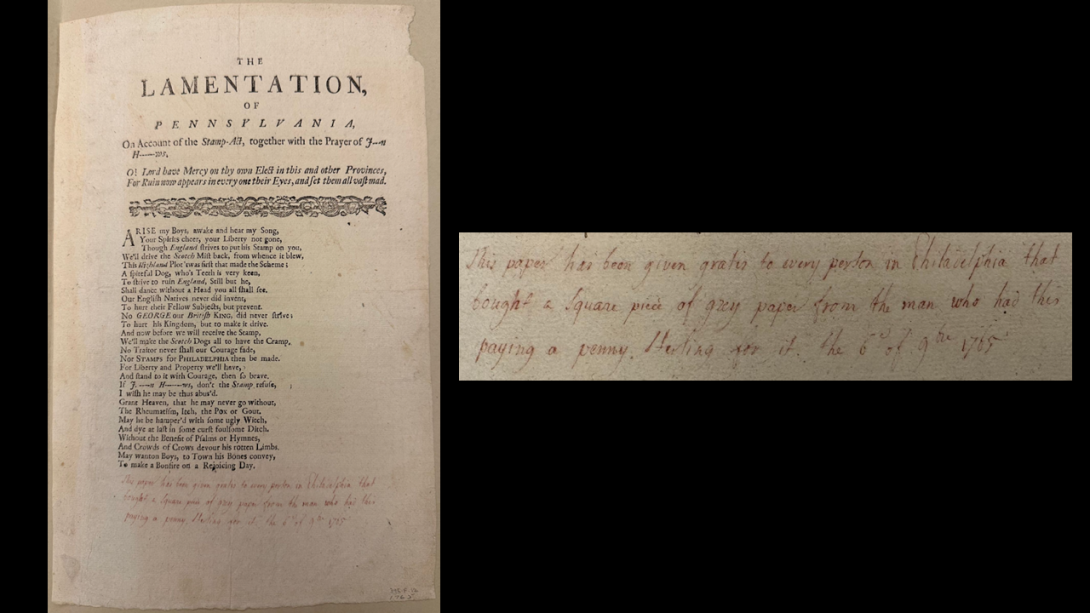 THE
LAMENTATION,
OF
PENNSYLVANIA,
On Account of the Stamp-Act, together with the Prayer of J---n
H----ws.
O! Lord have Mercy on thy own Elect in this and other Provinces,
For Ruin now appears in every one their Eyes, and set them all vast mad.
ARISE my Boys, awake and hear my Song,
Your Spirits cheer, your Liberty not gone,
Though England strives to put his Stamp on you,
We'll drive the Scotch Mist back, from whence it blew,
This Highland Plot 'twas first that made the Scheme;
A spiteful Dog, who's Teeth is very keen,
To strive to ruin England, Still but he,
Shall dance without a Head you all shall see.
Our English Natives never did invent,
To hurt their Fellow Subjects, but prevent.
No GEORGE our British KING, did never strive;
To hurt his Kingdom, but to make it drive.
And now before we will receive the Stamp,
We'll make the Scotch Dogs all to have the Cramp,
No Traitor never shall our Courage fade,
Nor STAMPS for PHILADELPHIA then be made.
For Liberty and Property we'll have,
And stand to it with Courage, then so brave.
If J---n H----ws, don't the Stamp refuse,
I wish he may be thus abus'd.
Grant Heaven, that he may never go without,
The Rheumatism, Itch, the Pox or Gout.
May he be hamper'd with some ugly Witch,
And dye at last in some curst foulsome Ditch.
Without the Benefit of Psalms or Hymnes,
And Crowds of Crows devour his rotten Limbs.
May wanton Boys, to Town his Bones convey,
To make a Bonfire on a Rejoicing Day.
This paper has been given gratis to every person in Philadelphia that
bought a Square piece of grey paper from the man who had this
paying a penny Sterling for it. the 6th of 9bre 1765
This paper has been given gratis to every person in Philadelphia that
bought a Square piece of grey paper from the man who had this
paying a penny Sterling for it. the 6th of 9bre 1765